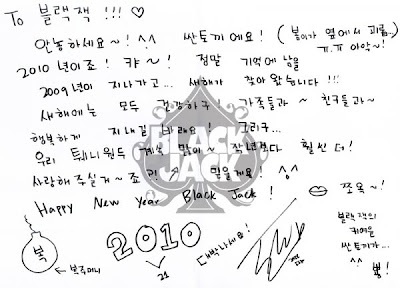 To 블랙잭 !!! ♡
안농하세요~! ^^ 싼토끼에요! (봄이가 옆에서 괴롭..
ㅠ.ㅠ 이악~!
2010년이죠! 캬~! 정말 기억에 남을
2009년이 지나가고... 새해가 찾아왔습니다!!!
새해에는 모두 건강하구! 가족들과~ 친구들과~
행복하게 지내길 바래요! 그리구...
우리 투애니원두 계속 많아~ 작년보다 훨씬 더!
사랑해주실거~죠?! ^^ 믿을게요! ^^
Happy New Year Black Jack! 쪼옥~!
BLACK JACK
복
복주머니
2010
21
대박나세요!
블랙잭의
귀여운
싼토끼가...
^^
뿅!